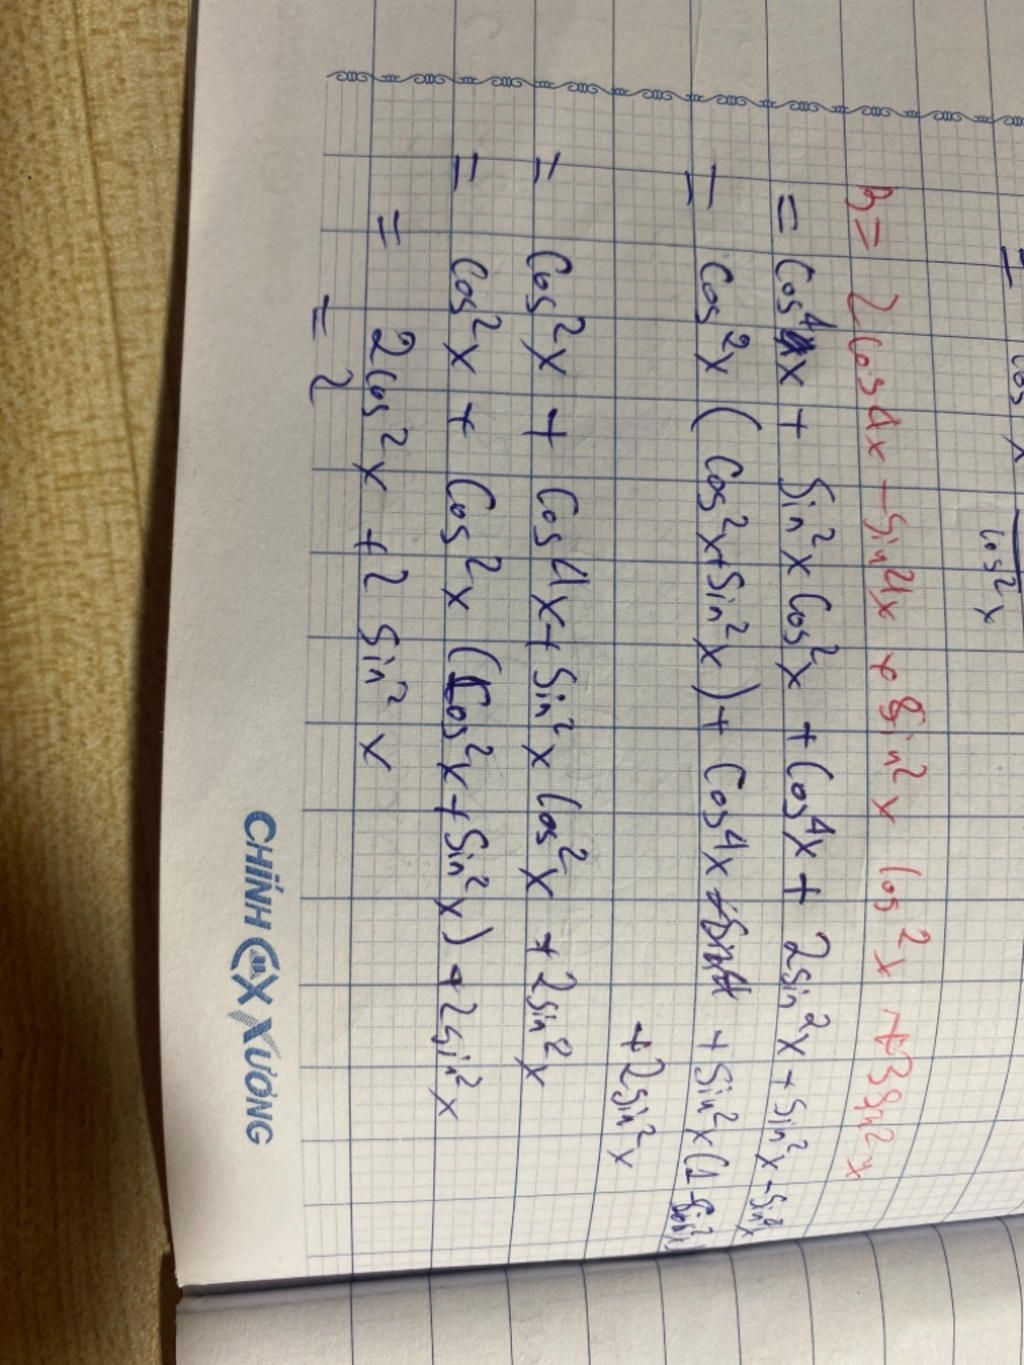 = cos x
cos²x
B = 2cos4x - sin4x + sin²x cos²x + 3sin²x
= cos⁴x + sin²x cos²x + cos⁴x + 2sin²x + sin²x - sin⁴x
= cos²x (cos²x + sin²x) + cos⁴x + sin²x (1 - sin²x)
+ 2sin²x
= cos²x + cos4x + sin²x cos²x + 2sin²x
= cos²x + cos²x (cos²x + sin²x) + 2sin²x
= 2cos²x + 2 sin²x
= 2
CHÍNH XƯƠNG